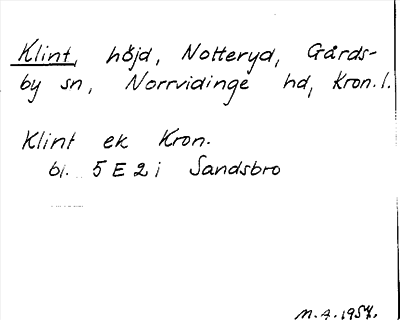 Klint, höjd, Notteryd, Gårds-
by sn, Norrvidinge hd, Kron. l.
Klint ek Kron.
bl. 5 E 2 i Sandsbro